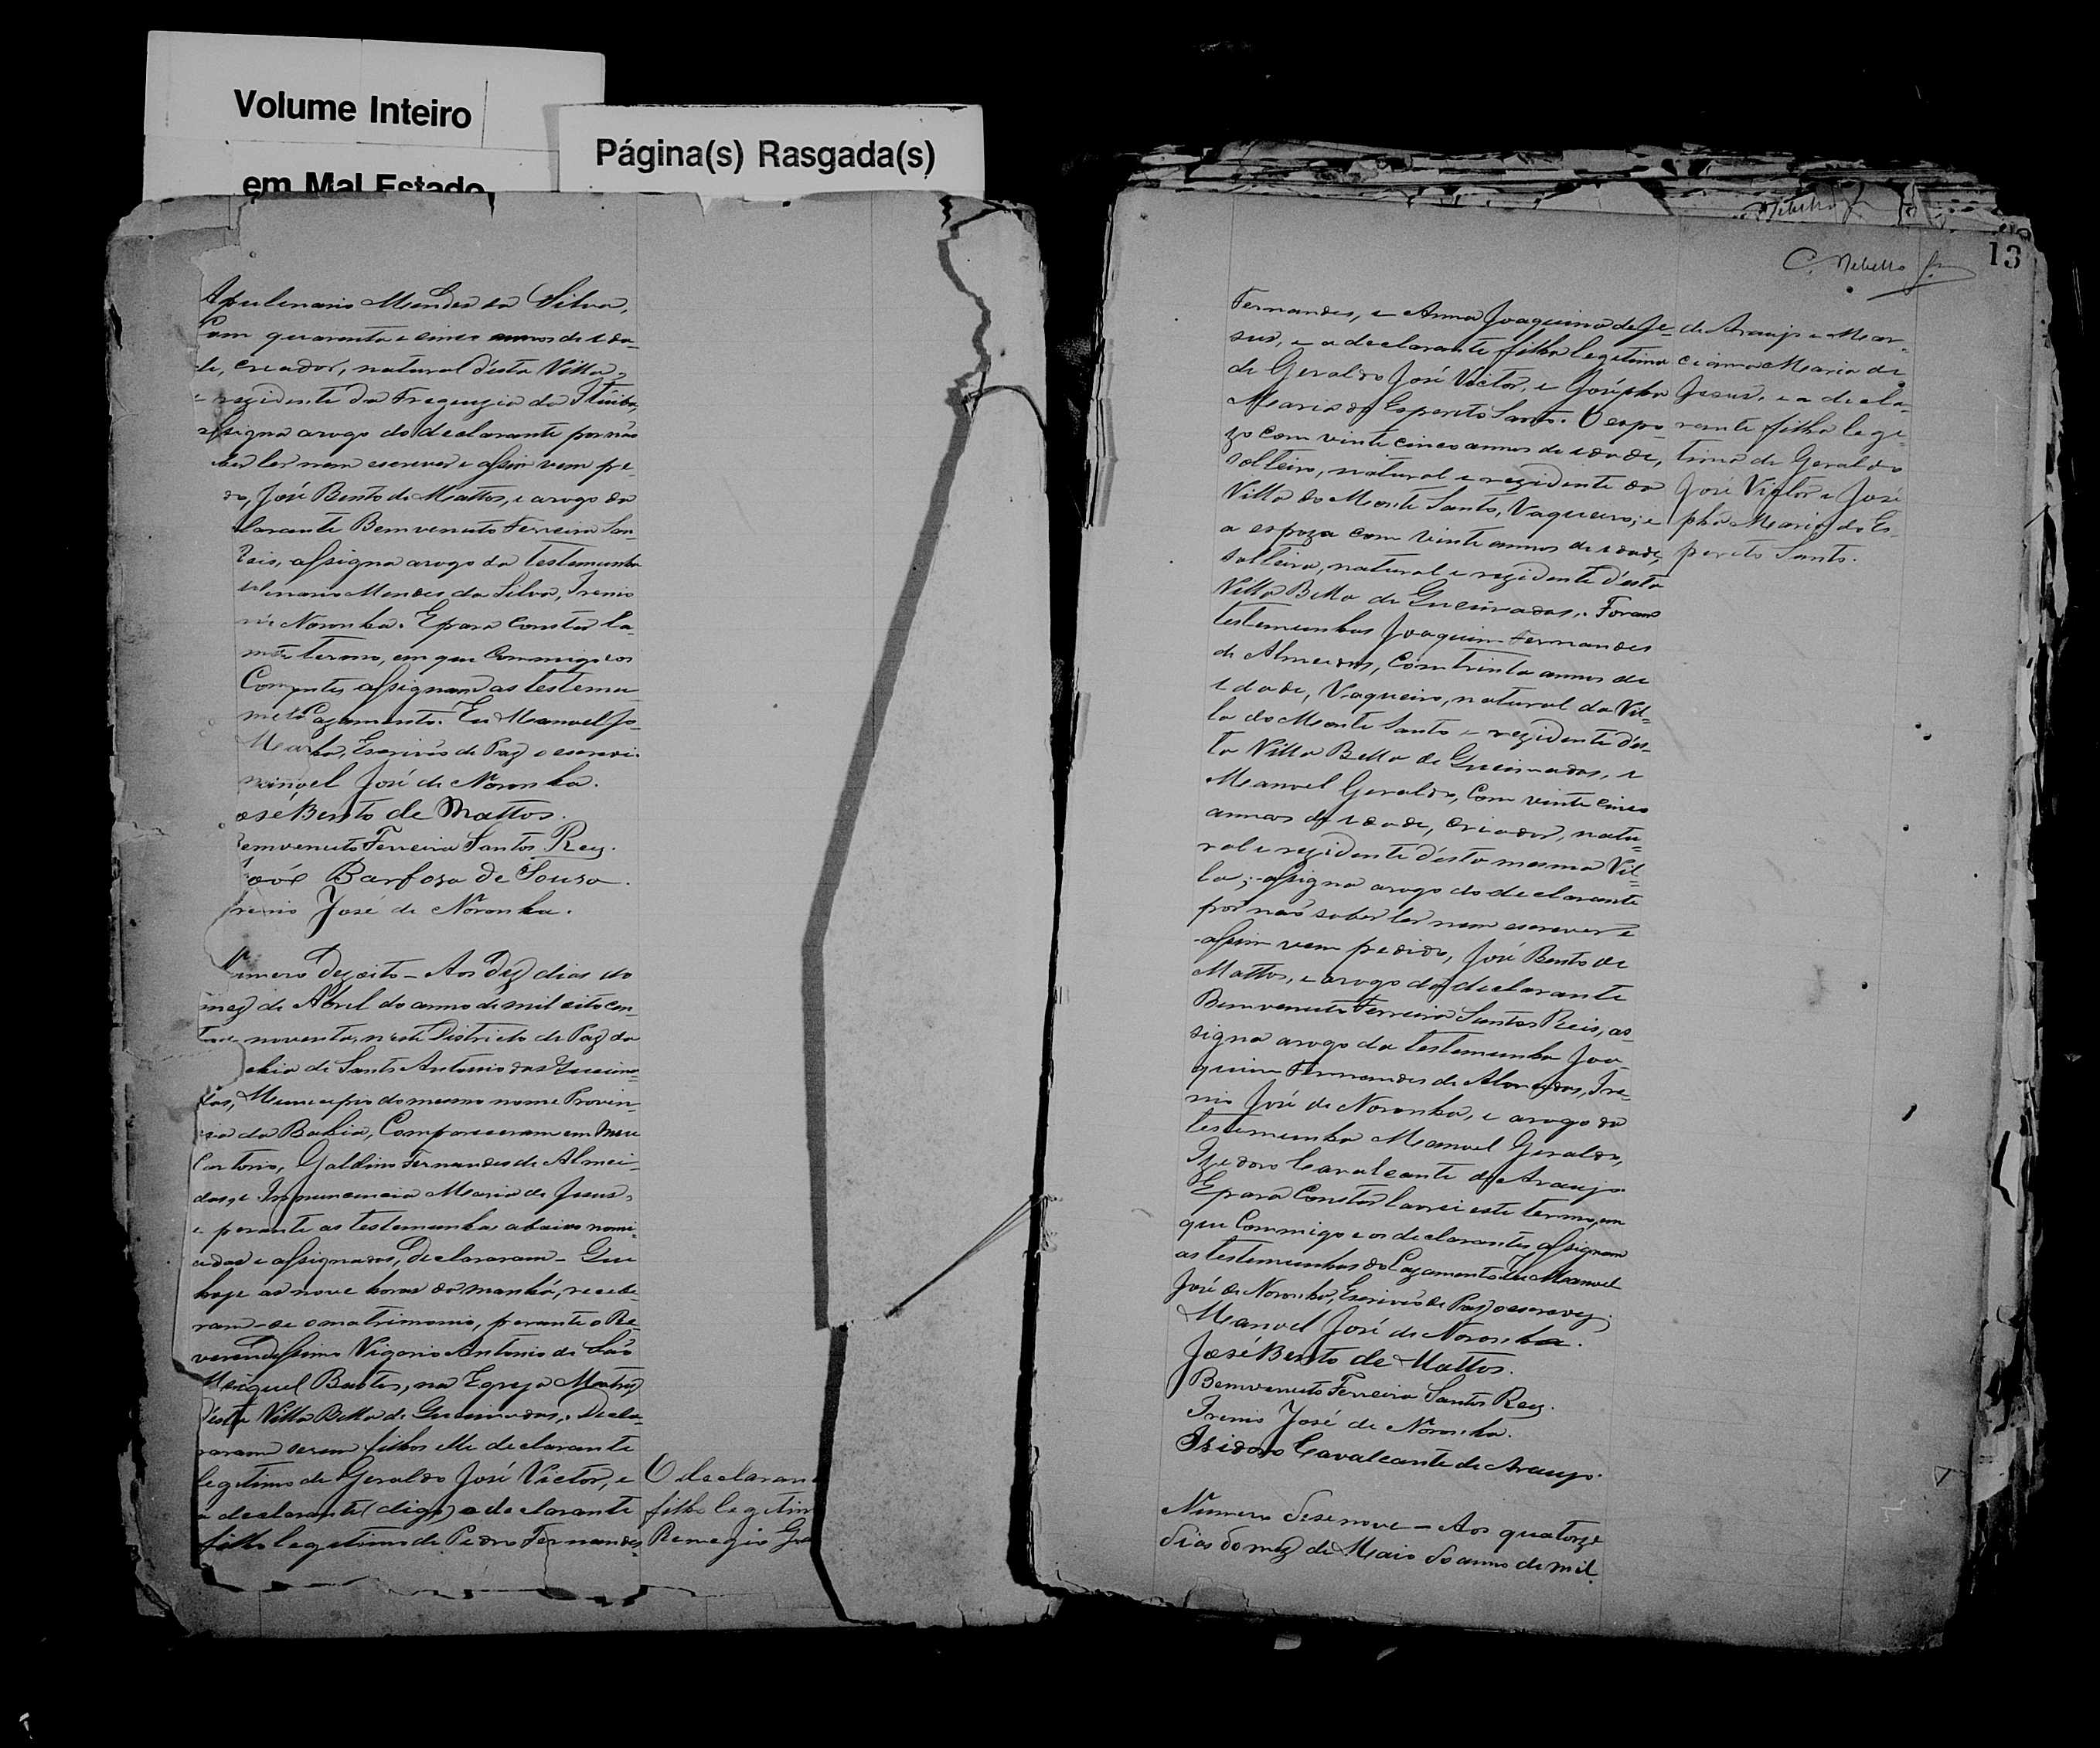 Volume Inteiro
em Mal Estado
Página(s) Rasgada(s)
Apulenario Mendes da Silva,
Com quarenta e cinco annos de ida-
de, creador, natural d'esta Villa,
e rezidente da Freguezia da Itiuba,
assigna arogo do declarante por não
ber ler nem escrever e assim vem pe-
do, José Bento de Mattos, e arogo da
clarante Bemvenuto Ferreira San
Reis, assigna arogo da testemunha
lenario Mendes da Silva, Irenio
sé Noronha. E para constar la-
este termo, em que Commigo e os
assignam as testemu
Cazamento. Eu Manoel Jo-
Escrivão de Paz o escrevi.
Manoel José de Noronha.
José Bento de Mattos.
Bemvenuto Ferreira Santos Reis.
José Barbosa de Sousa.
Irenio José de Noronha.
Numero Dezoito - Aos Dez dias do
mez de Abril do anno de mil oitocen
noventa, n'este Districto de Paz da
chia de Santo Antonio das Queima-
das, Municipio do mesmo nome Provin-
cia da Bahia, Compareceram em meu
Cartorio, Galdino Fernandes de Almei-
das, e Innumencia Maria de Jesus,
e perante as testemunhas abaixo nomi-
adas e assignados, Declararam - Que
hoje as nove horas da manhã, recebe-
ram-se omatrimonio, perante o Re-
verendissimo Vigario Antonio de São
Miguel Bastos, na Egreja Matriz
d'esta Villa Bella de Queimadas. Decla-
raram serem filhos elle declarante
legitimo de Geraldo José Victor, e
a declarante (digo) o declarante
filho legitimo de Pedro Fernandes
O declaran
filho legitim
Remegio
C. Rebello
13
Fernandes, e Anna Joaquina de Je-
sus, e a declarante filha legitima
de Geraldo José Victor, e Josépha
Maria do Esperito Santo. O espo-
zo com vinte cinco annos de idade,
solteiro, natural e rezidente da
Villa do Monte Santo, Vaqueiro; e
a espoza com vinte annos de idade,
solteira, natural e rezidente d'esta
Villa Bella de Queimadas. Foram
testemunhas Joaquim Fernandes
de Almeidas, Com trinta annos de
idade, Vaqueiro, natural da Vil-
la do Monte Santo e rezidente d'es-
ta Villa Bella de Queimadas, e
Manoel Geraldo, Com vinte cinco
annos de idade, criador, natu-
ral e rezidente d'esta mesma Vil-
la; assigna arogo do declarante
por não saber ler nem escrever e
assim vem pedido, José Bento de
Mattos, e arogo da declarante
Bemvenuto Ferreira Santos Reis, as-
signa arogo da testemunha Joa-
quim Fernandes de Almeidas, Ire-
nio José de Noronha, e arogo da
testemunha Manoel Geraldo,
Izedoro Cavalcante de Araujo
E para Constar lavrei este termo, em
que Commigo e os declarantes assignam
as testemunhas do Cazamento. Eu Manoel
José de Noronha, Escrivão de Paz o escrevy.
Manoel José de Noronha.
José Bento de Mattos.
Bemvenuto Ferreira Santos Reis.
Irenio José de Noronha.
Isidoro Cavalcante de Araujo.
Numero desenove - Aos quatorze
dias do mez de Maio do anno de mil
de Araujo e Mar-
ciana Maria de
Jesus, e a decla-
rante filha lege-
tima de Geraldo
José Victor e José
pha Maria do Es-
perito Santo.